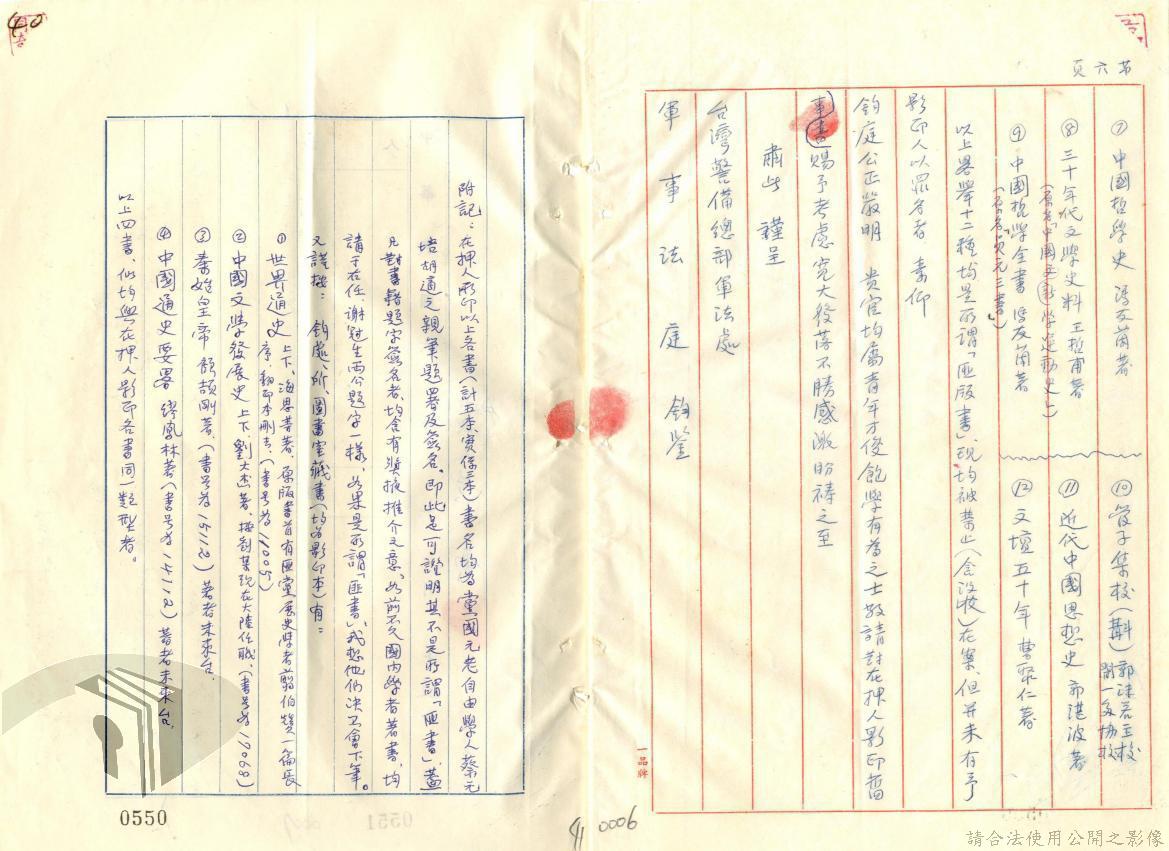 第六頁
⑦ 中國哲學史 馮友蘭著
⑧ 三十年代文學史料 王哲甫著
（原名「中國新文學運動史」）
⑨ 中國哲學全書 馮友蘭著
（原名「貞元三書」）
⑩ 管子集校（斠）郭沫若主校
聞一多協校
⑪ 近代中國思想史 郭湛波著
⑫ 文壇五十年 曹聚仁著
以上畧舉十二種均是所謂「匪版書」，現均被禁止（含沒收）在案，但並未有予
影印人以罪名者 素仰
鈞庭公正嚴明 貴官均屬青年才俊飽學有為之士敬請對在押人影印舊
事書賜予考慮寬大發落不勝感激盼禱之至
肅此 謹呈
台灣警備總部軍法處
軍事法庭 鈞鑒
一品牌
附記：在押人影印以上各書（計五本，實係三本）書名均為黨國元老自由學人蔡元
培胡適之親筆題署及簽名。即此足可證明其不是所謂「匪書」，蓋
凡對書籍題字簽名者，均含有獎掖推介之意，如前不久國內學者著書，均
請于右任謝冠生兩公題字一樣，如果是所謂「匪書」，我想他們決不會下筆。
又謹按：鈞處、所，圖書室藏書（均為影印本）有：
① 世界通史 上下、海思著著，原版書首有匪黨歷史學者翦伯贊一篇長
序，翻印本刪去，（書号為19005）
② 中國文學發展史 上下 劉大杰著，按劉某現在大陸任職，（書号為19068）
③ 秦始皇帝 顧頡剛著，（書号為15112）著者未來台，
④ 中國通史要畧 繆鳳林著（書号為14112）著者未來台，
以上四書，似均與在押人影印各書同一類型者。
0550
0551
40
41
0006
請合法使用公開之影像